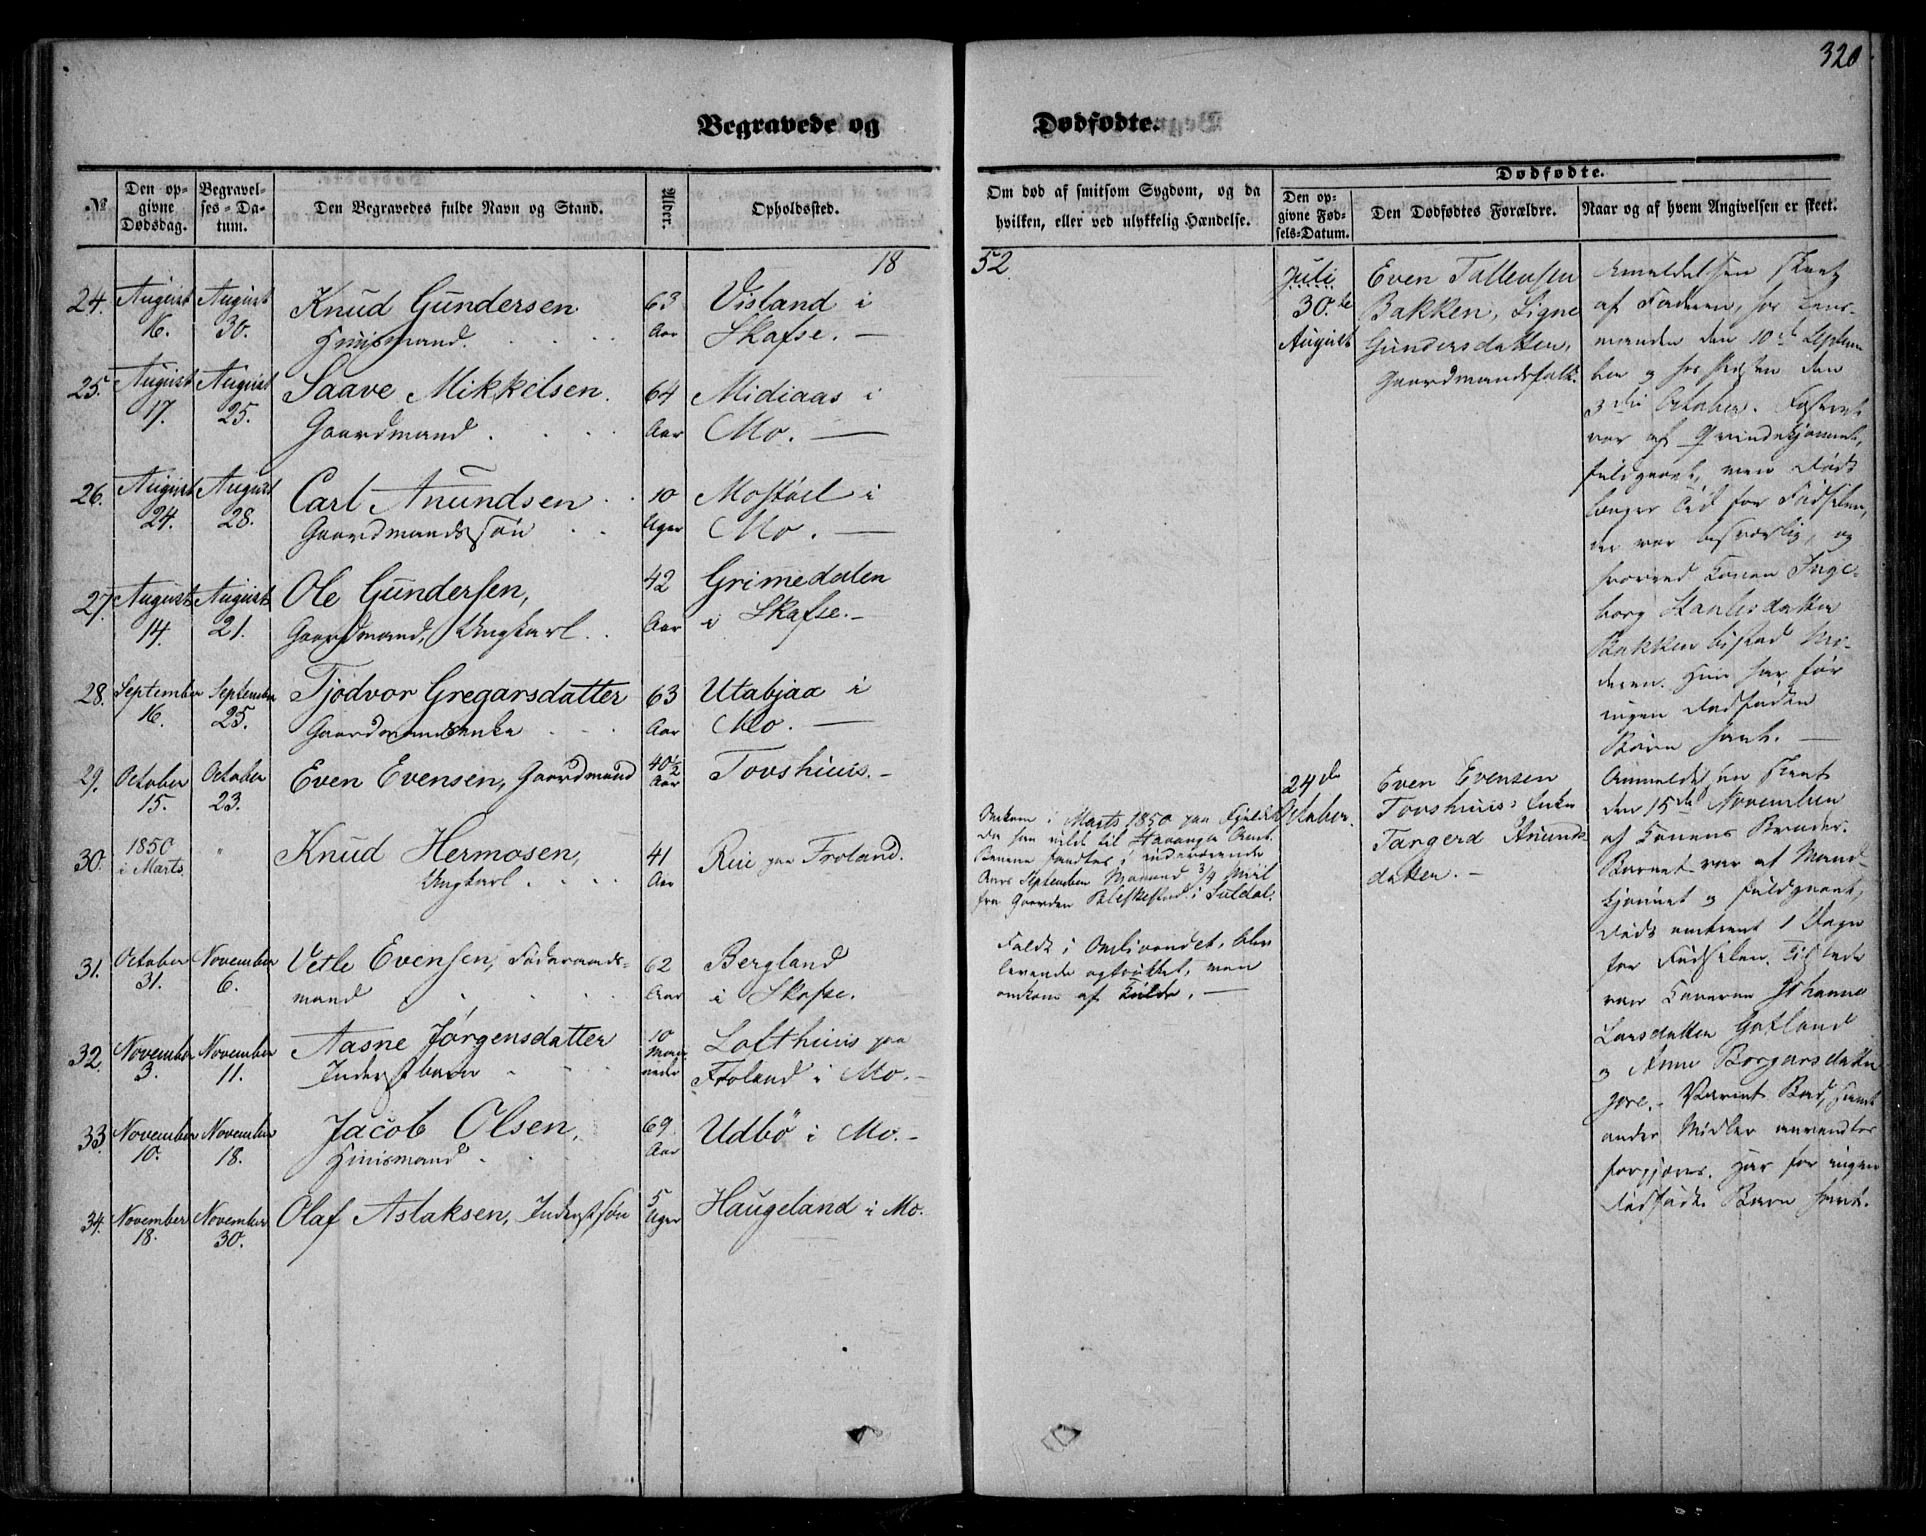 320
Begravede og Dødfødte.
№
Den opgivne Dødsdag.
Begravelses-Datum.
Den Begravedes fulde Navn og Stand.
Alder.
Opholdssted.
Om død af smitsom Sygdom, og da
hvilken, eller ved ulykkelig Hændelse.
Dødfødte.
Den opgivne Fødsels-Datum.
Den Dødfødtes Forældre.
Naar og af hvem Angivelsen er skeet.
18 52
24. August 16. August 30. Knud Gundersen
Huusmand.
63 Aar
Visland i
Skafse. —
25. August 17. August 25. Saave Mikkelsen.
Gaardmand.
64 Aar
Midiaas i
Mo. —
26. August 24. August 28. Carl Anundsen
Gaardmandssøn
10 Uger
Mostøel i
Mo. —
27. August 14. August 21. Ole Gundersen,
Gaardmand, Ungkarl.
42 Aar
Grimedalen
i Skafse. —
28. September 16. September 25. Tjodvor Gregarsdatter
Gaardmandsenke
63 Aar
Utabjaa i
Mo. —
29. October 15. October 23. Even Evensen, Gaardmand
40½ Aar
Tovshuus. —
30. 1850 i Marts. " Knud Hermosen,
Ungkarl.
41 Aar
Rue paa Froland.
Omkom i Marts 1850 paa Fjeldet
da han vilde til Stavanger Amt.
Benene fandtes i indeværende
Aars September Maaned 3/4 Miil
fra Gaarden Bleskestad i Suldal.
31. October 31. November 6. Vetle Evensen, Föderaads-
mand
62 Aar
Bergland
i Skafse.
Faldt i Vandet, blev
levende optrukket, men
omkom af Kulde. —
32. November 3. November 11. Aasne Jørgensdatter
Inderstbarn
10 Maaneder
Lofthuus paa
Froland i Mo. —
33. November 10. November 18. Jacob Olsen,
Huusmand.
69 Aar
Udbö i Mo. —
34. November 18. November 30. Olaf Aslaksen, Inderstsøn
5 Uger
Haugeland i Mo.
Juli
30.te
August
Even Tallevsen
Bakken, Signe
Gundersdatter,
Gaardmandsfolk.
Anmeldelsen skeet
af Faderen, for Lens-
manden den 10de Septem-
ber og for Præsten den
3die October. Fosteret
var af Qvindekjønnet,
fuldbaaret, men dødt
længer Tid for Fødselen,
der var besværlig, og
hvorved Konen Inge-
borg
Bakken bistod Mo-
deren. Hun har før
ingen dødfødte
Børn havt. —
24de
October.
Even Evensen
Tovshuus's Enke
Targerd Anunds-
datter. —
Anmeldelsen skeet
den 15de November
af Konens Broder.
Barnet var af Mand-
kjønnet og fuldbaaret,
dødt omtrent 1 Dagn
før Fødselen. Tilstede
var Konerne Johanne
Larsdatter Gotland
og Anne Borgarsdatter
Varmt Bad, samt
andre Midler anvendtes
forgjæves. Har før ingen
dødfødt Børn havt.